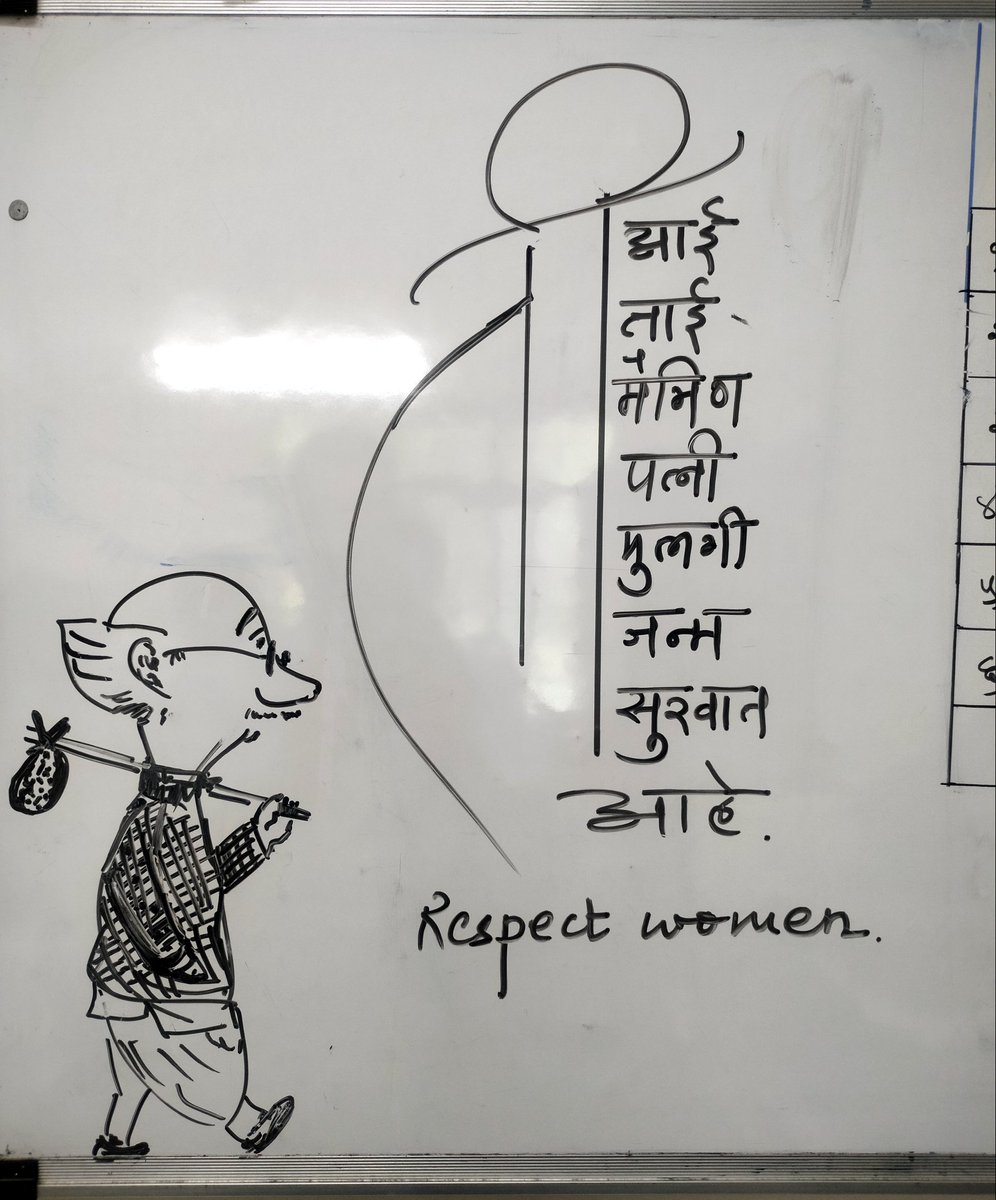 ती
आई
ताई
मैत्रिण
पत्नी
मुलगी
जन्म
सुरवात
आहे.
Respect women.